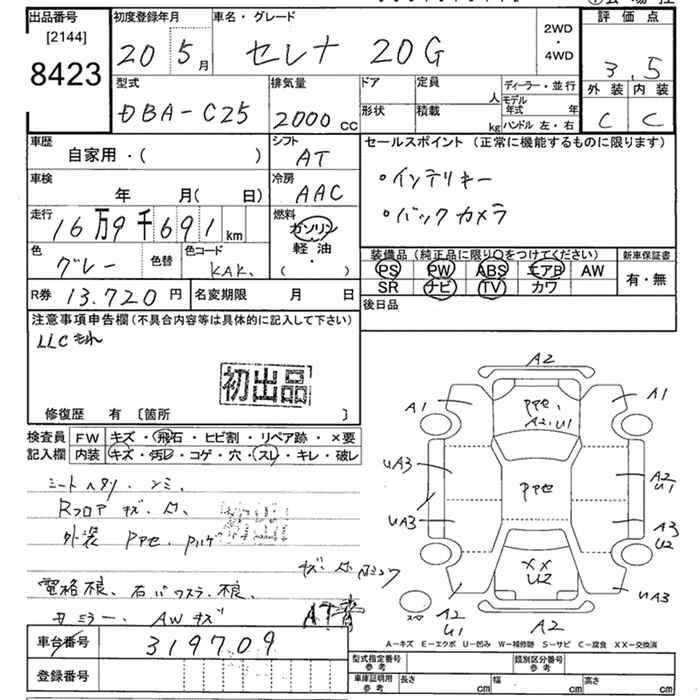 出品番号 初度登録年月 車名・グレード 評価点
[2144] 2WD ・ 4WD
8423 20 5月 セレナ 20G 3.5
型式 排気量 ドア 定員 人 ディーラー・並行 外装 内装
DBA-C25 2000cc 形状 積載 kg モデル年式 年 ハンドル 左・右 C C
車歴 自家用・( ) シフト AT セールスポイント (正常に機能するものに限ります)
車検 年 月( 日) 冷房 AAC ・インテリキー
走行 16万9千691km 燃料 ガソリン 軽油 ( ・ ) ・バックカメラ
色 グレー 色替 色コード KAK. 装備品(純正品に限り○をつけてください) 新車保証書
PS PW ABS エアB AW 有・無
SR ナビ TV カワ
R券 13.720円 名変期限 月 日 後日品
注意事項申告欄(不具合内容等は具体的に記入して下さい)
LLCもれ
初出品
修復歴 有 [箇所 ]
検査員記入欄 FW キズ・飛石・ヒビ割・リペア跡・×要
内装 キズ・汚レ・コゲ・穴・スレ・キレ・破レ
シートヘタリ、シミ、
Rフロア キズ、
外装 PPe.
電格不良、 不良、
ミラー、AWキズ
A2
A1 PPe. A2.U1 A1
UA3 A2 U1
PPe
UA3 A3 U2
XX U2 UA3
A2 U1 A2
A-キズ E-エクボ U-凹み W-補修跡 S-サビ C-腐食 XX-交換済
車台番号 319709
登録番号
型式指定番号 参考 類別区分番号 参考
車庫証明用 参考 長さ cm 幅 cm 高さ cm